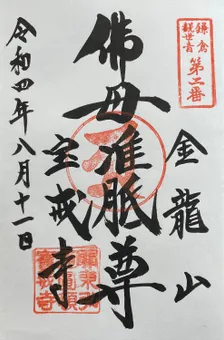 鎌倉
観世音
第二番
金龍山
佛母准胝尊
宝戒寺
令和四年八月十一日